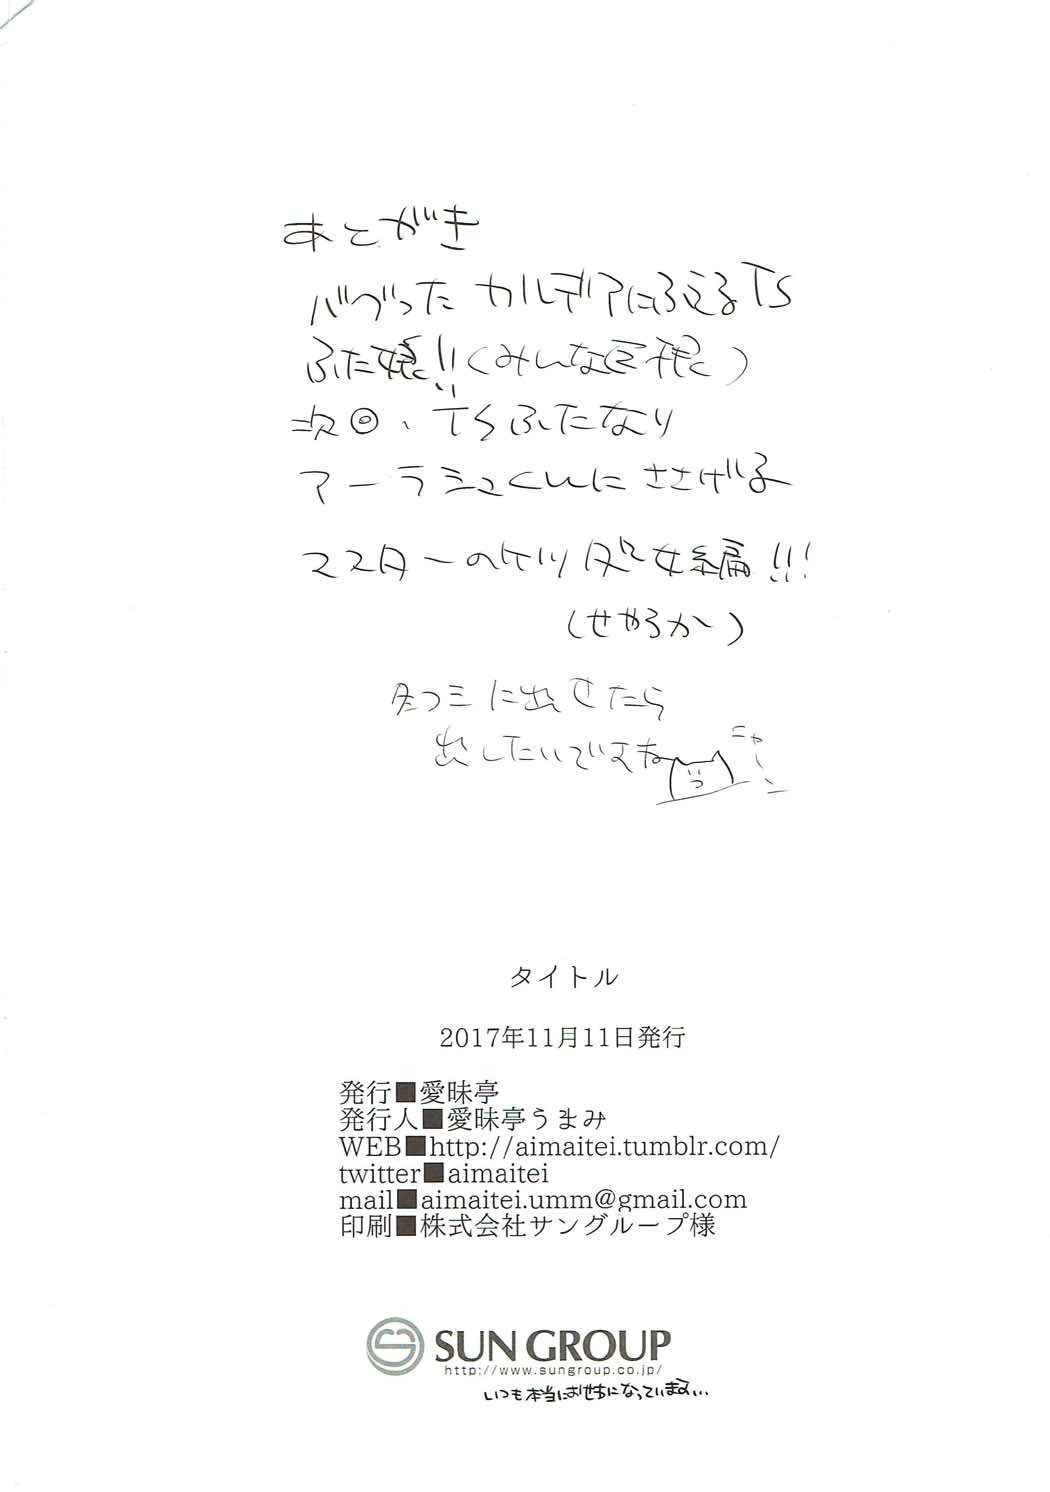 あとがき
バグった カルデアにふえるTS
ふた娘!!(みんな巨根)
次回、TSふたなり
アーラシュくんに ささげる
マスターのケツ処女編!!!
(せやろか)
冬コミに出せたら
出したいですね
ニャーン
タイトル
2017年11月11日発行
発行■愛昧亭
発行人■愛昧亭うまみ
WEB■http://aimaitei.tumblr.com/
twitter■aimaitei
mail■aimaitei.umm@gmail.com
印刷■株式会社サングループ様
SUN GROUP
http://www.sungroup.co.jp/
いつも本当にお世ちになっています...